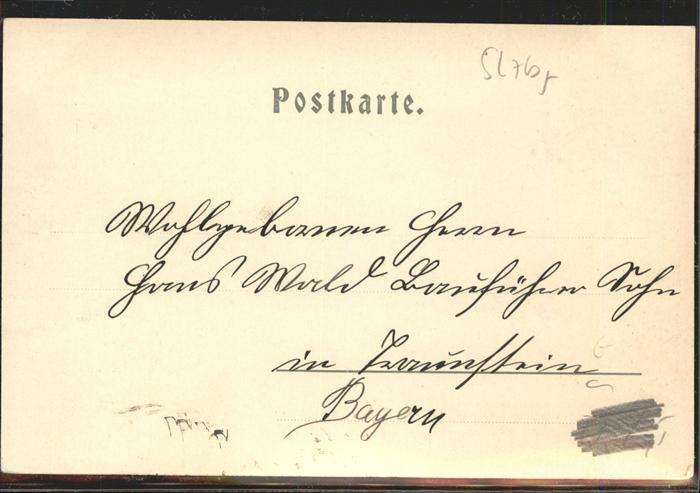 Postkarte.
Wohlgeborenen Herrn
Hans Wald Bauführer Sohn
in Traunstein
Bayern